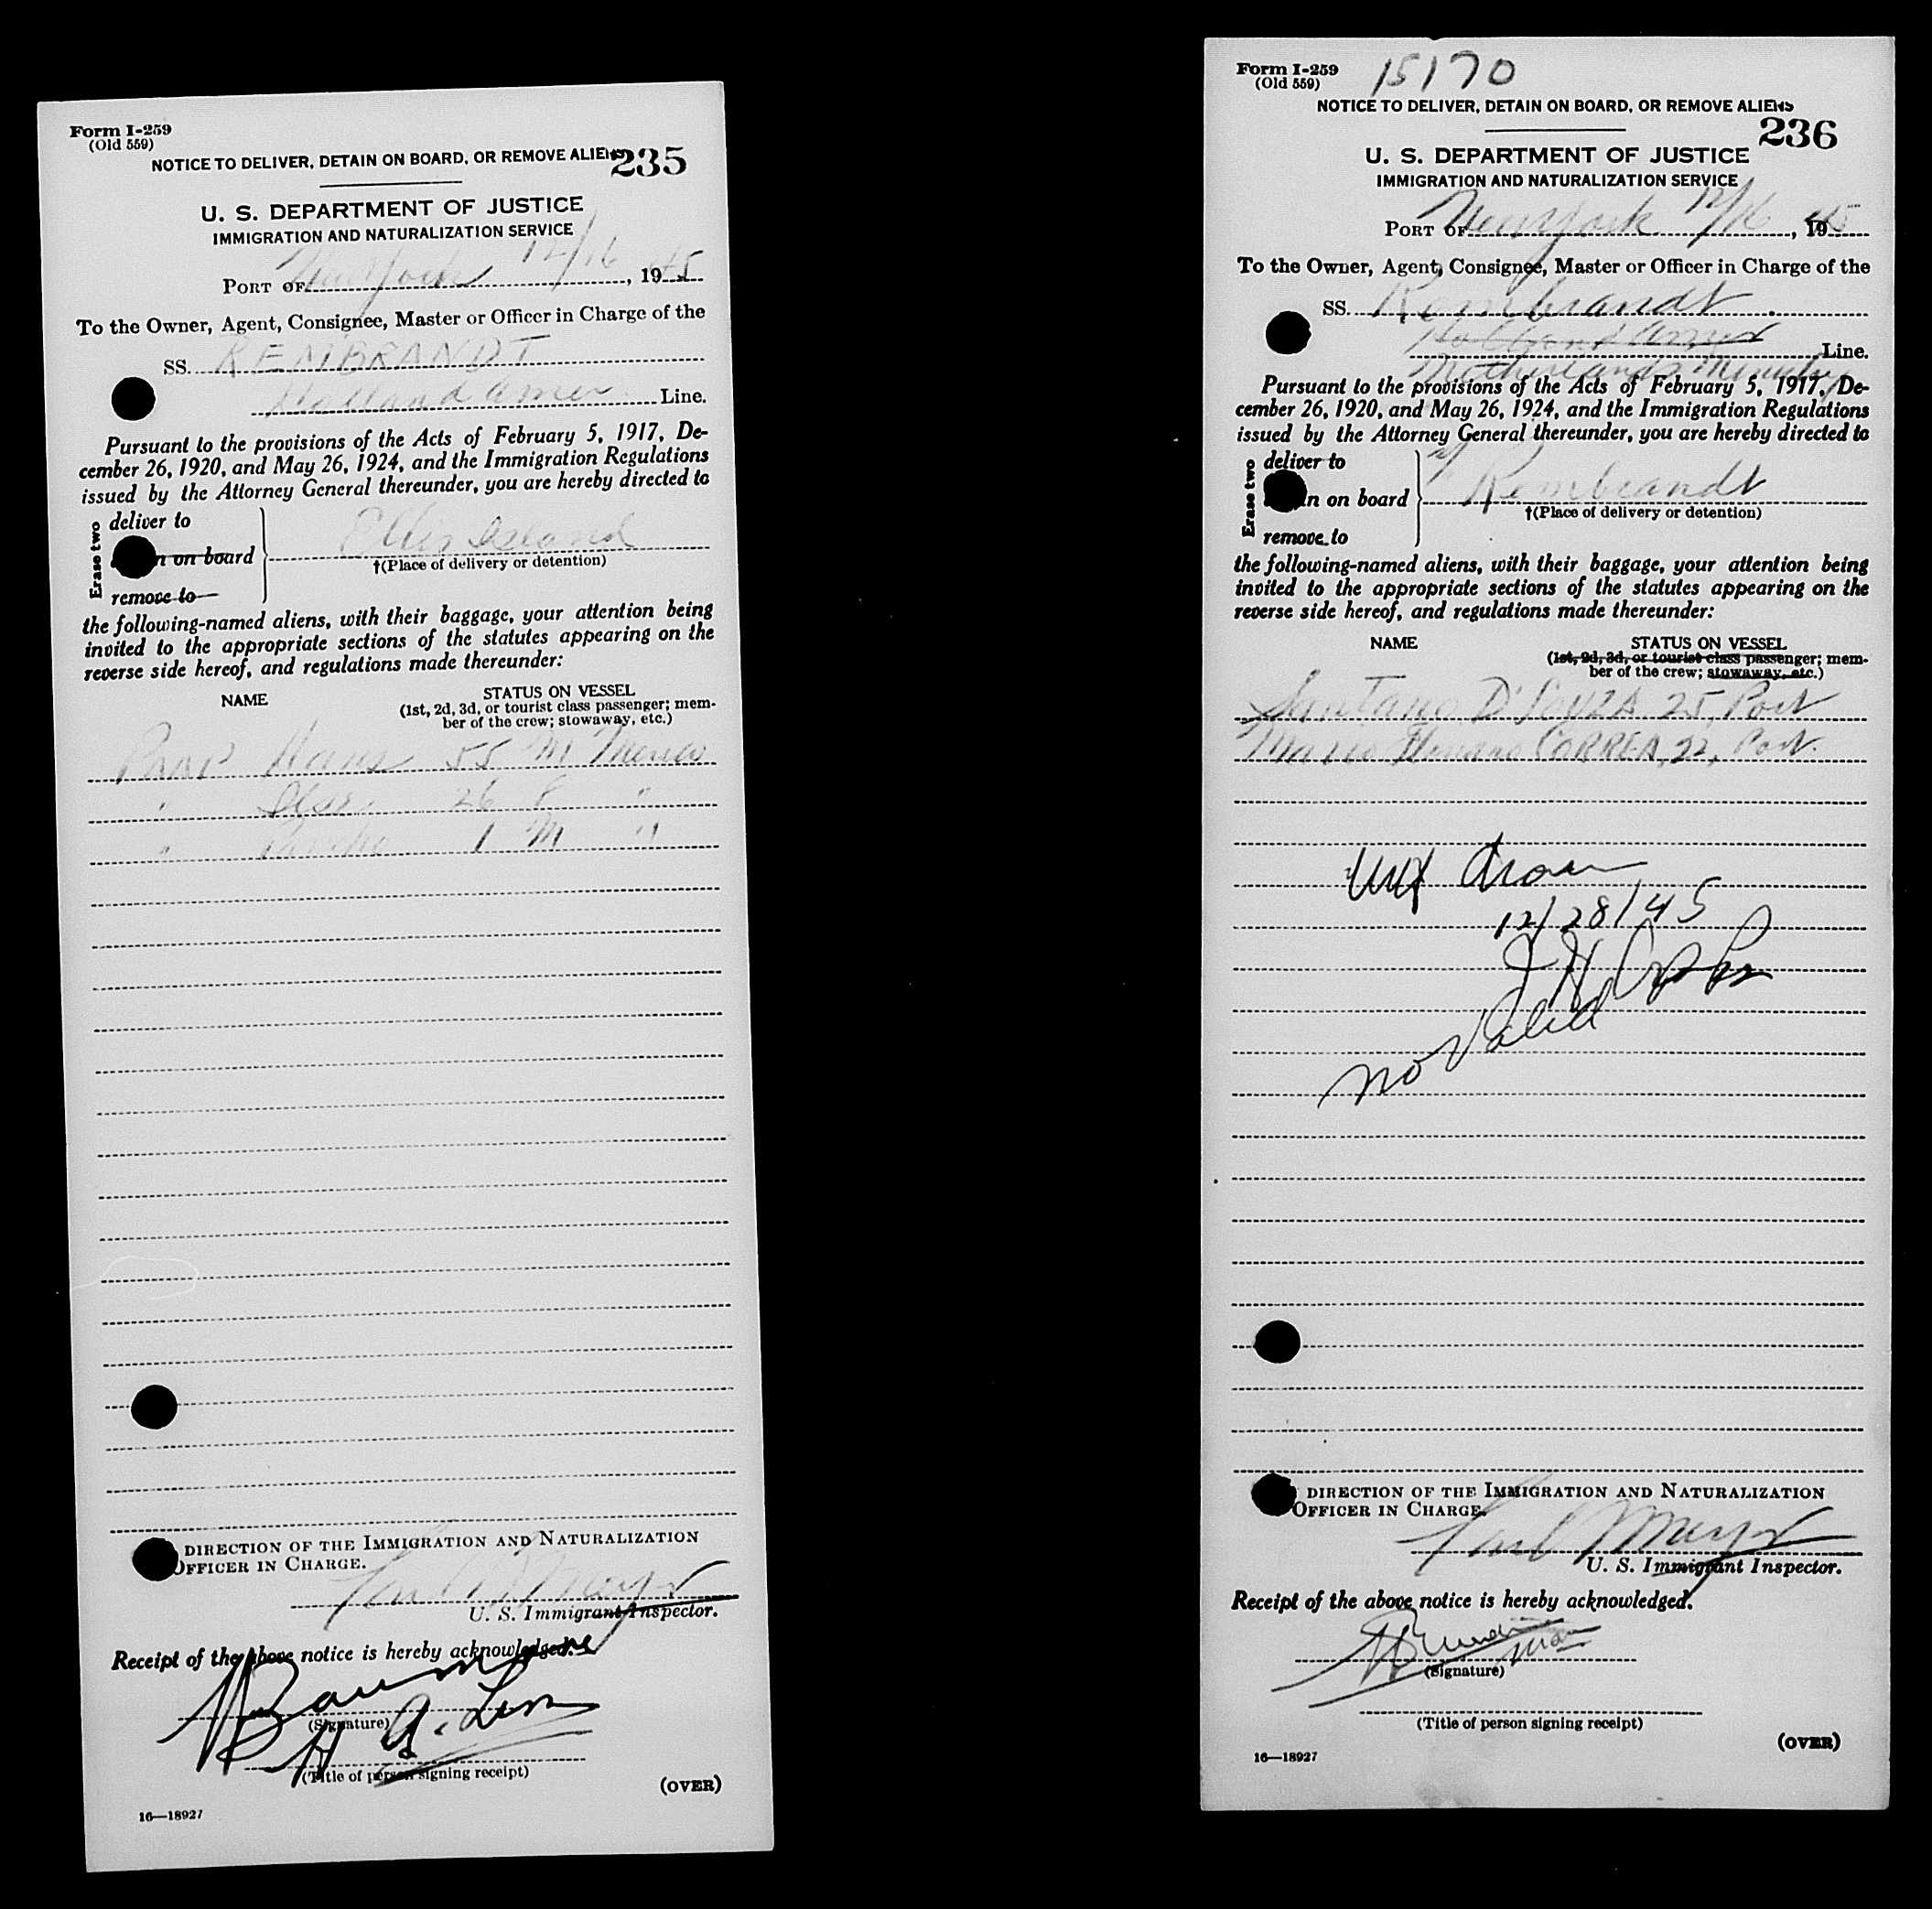 Form I-259
(Old 559)
NOTICE TO DELIVER, DETAIN ON BOARD, OR REMOVE ALIENS
235
U. S. DEPARTMENT OF JUSTICE
IMMIGRATION AND NATURALIZATION SERVICE
PORT OF New York 12/16, 1945
To the Owner, Agent, Consignee, Master or Officer in Charge of the
SS. REMBRANDT
Holland Amer Line.
Pursuant to the provisions of the Acts of February 5, 1917, De-
cember 26, 1920, and May 26, 1924, and the Immigration Regulations
issued by the Attorney General thereunder, you are hereby directed to
Erase two
deliver to
n on board
remove to
Ellis Island
†(Place of delivery or detention)
the following-named aliens, with their baggage, your attention being
invited to the appropriate sections of the statutes appearing on the
reverse side hereof, and regulations made thereunder:
NAME
STATUS ON VESSEL
(1st, 2d, 3d, or tourist class passenger; mem-
ber of the crew; stowaway, etc.)
PAAP Hans 55 M Mexico
" 26 F "
" 1 M "
DIRECTION OF THE IMMIGRATION AND NATURALIZATION
OFFICER IN CHARGE.
U. S. Immigrant Inspector.
Receipt of the above notice is hereby acknowledged.
(Signature)
(Title of person signing receipt)
(OVER)
16—18927
Form I-259
(Old 559)
15170
NOTICE TO DELIVER, DETAIN ON BOARD, OR REMOVE ALIENS
236
U. S. DEPARTMENT OF JUSTICE
IMMIGRATION AND NATURALIZATION SERVICE
PORT OF New York 12/16, 1945
To the Owner, Agent, Consignee, Master or Officer in Charge of the
SS. Rembrandt
Holland Amer Line.
Netherlands Ministry
Pursuant to the provisions of the Acts of February 5, 1917, De-
cember 26, 1920, and May 26, 1924, and the Immigration Regulations
issued by the Attorney General thereunder, you are hereby directed to
Erase two
deliver to
n on board
remove to
Rembrandt
†(Place of delivery or detention)
the following-named aliens, with their baggage, your attention being
invited to the appropriate sections of the statutes appearing on the
reverse side hereof, and regulations made thereunder:
NAME
STATUS ON VESSEL
(1st, 2d, 3d, or tourist class passenger; mem-
ber of the crew; stowaway, etc.)
Santano D'SOUZA 25, Port
Mario CORREA, 22, Port.
12/28/45
no Valid
DIRECTION OF THE IMMIGRATION AND NATURALIZATION
OFFICER IN CHARGE.
U. S. Immigrant Inspector.
Receipt of the above notice is hereby acknowledged.
(Signature)
(Title of person signing receipt)
(OVER)
16—18927